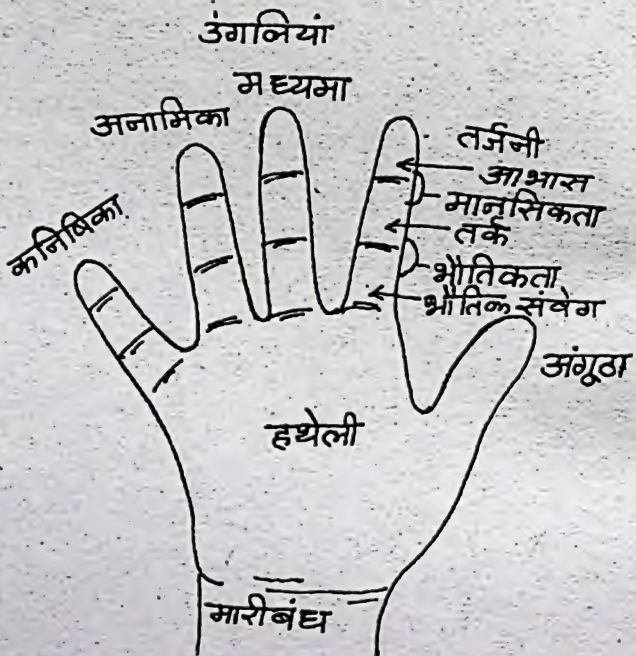 उंगलियां
मध्यमा
अनामिका
कनिषिका
तर्जनी
आभास
मानसिकता
तर्क
भौतिकता
भौतिक संवेग
अंगूठा
हथेली
मारीबंध